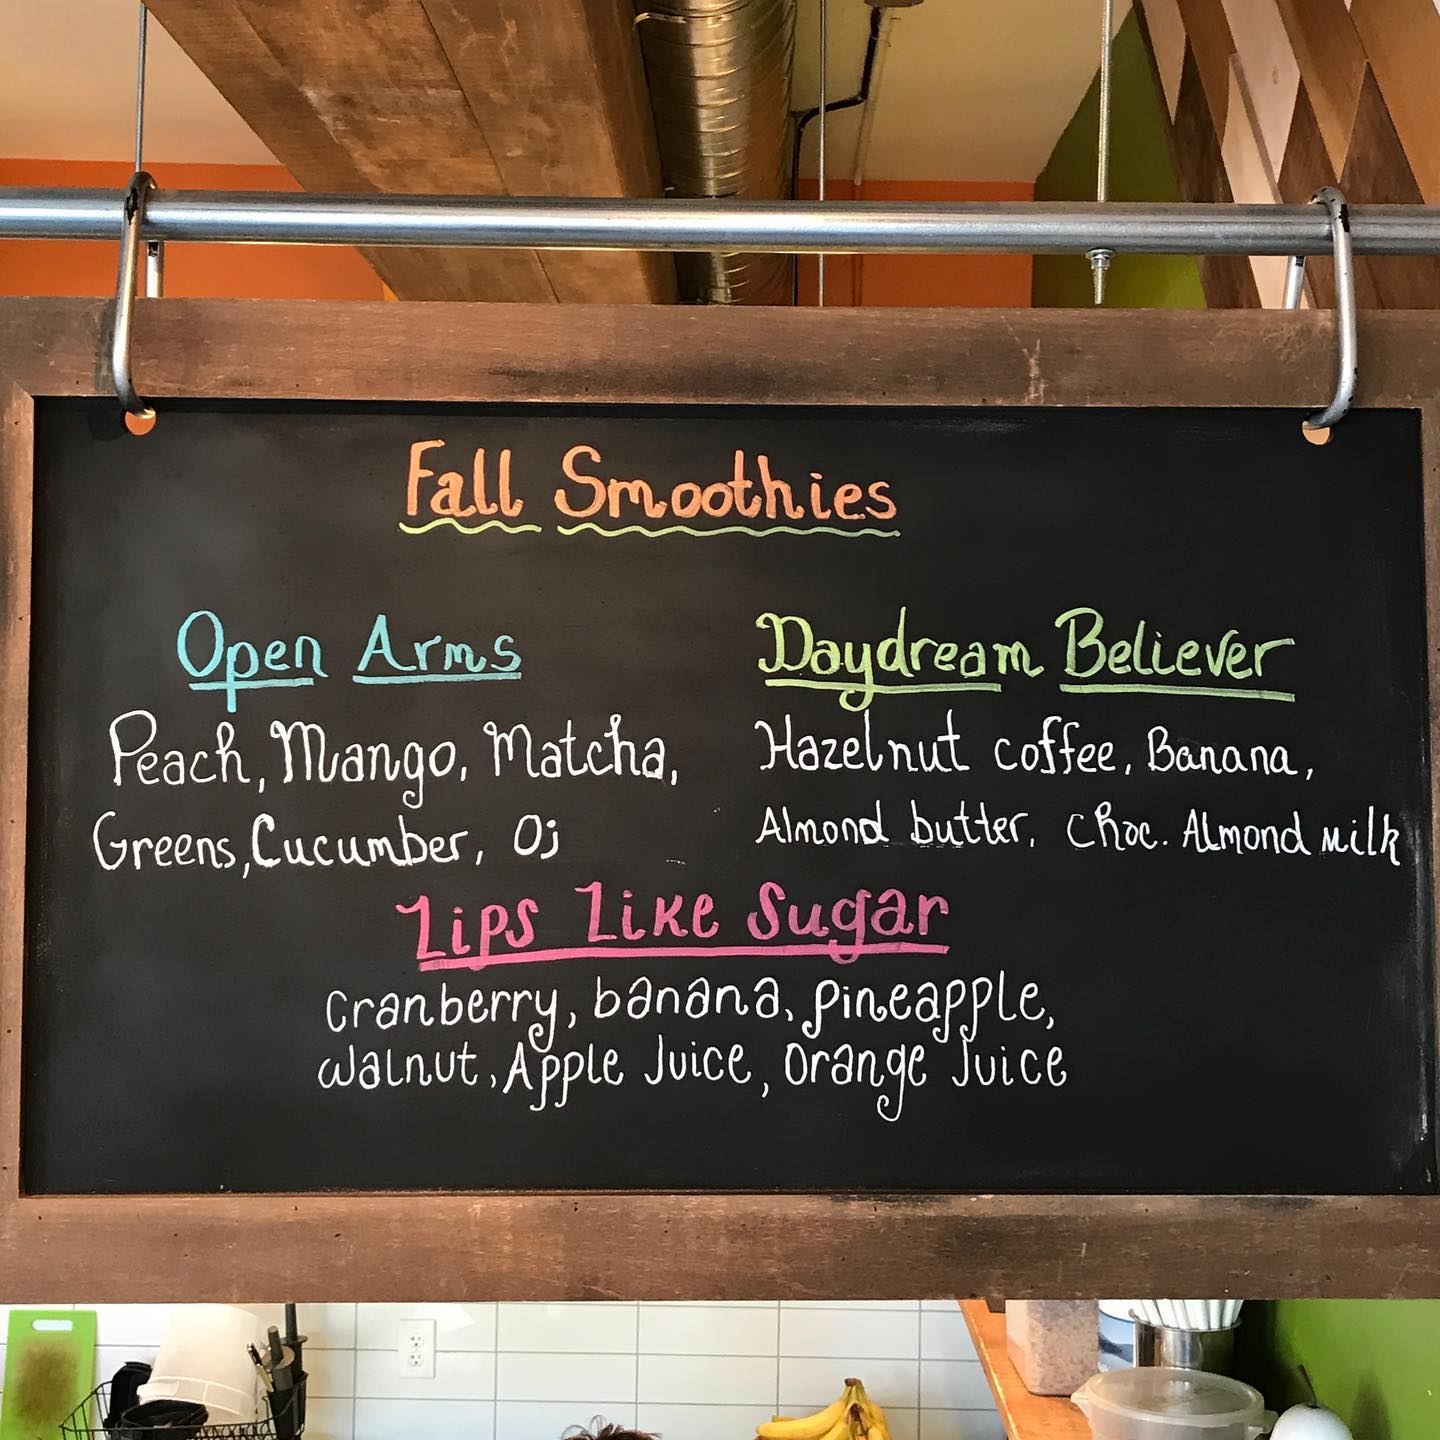 Fall Smoothies
Open Arms
Peach, Mango, Matcha,
Greens, Cucumber, Oj
Daydream Believer
Hazelnut coffee, Banana,
Almond butter, choc. Almond milk
Lips Like Sugar
cranberry, banana, pineapple,
walnut, Apple Juice, orange Juice